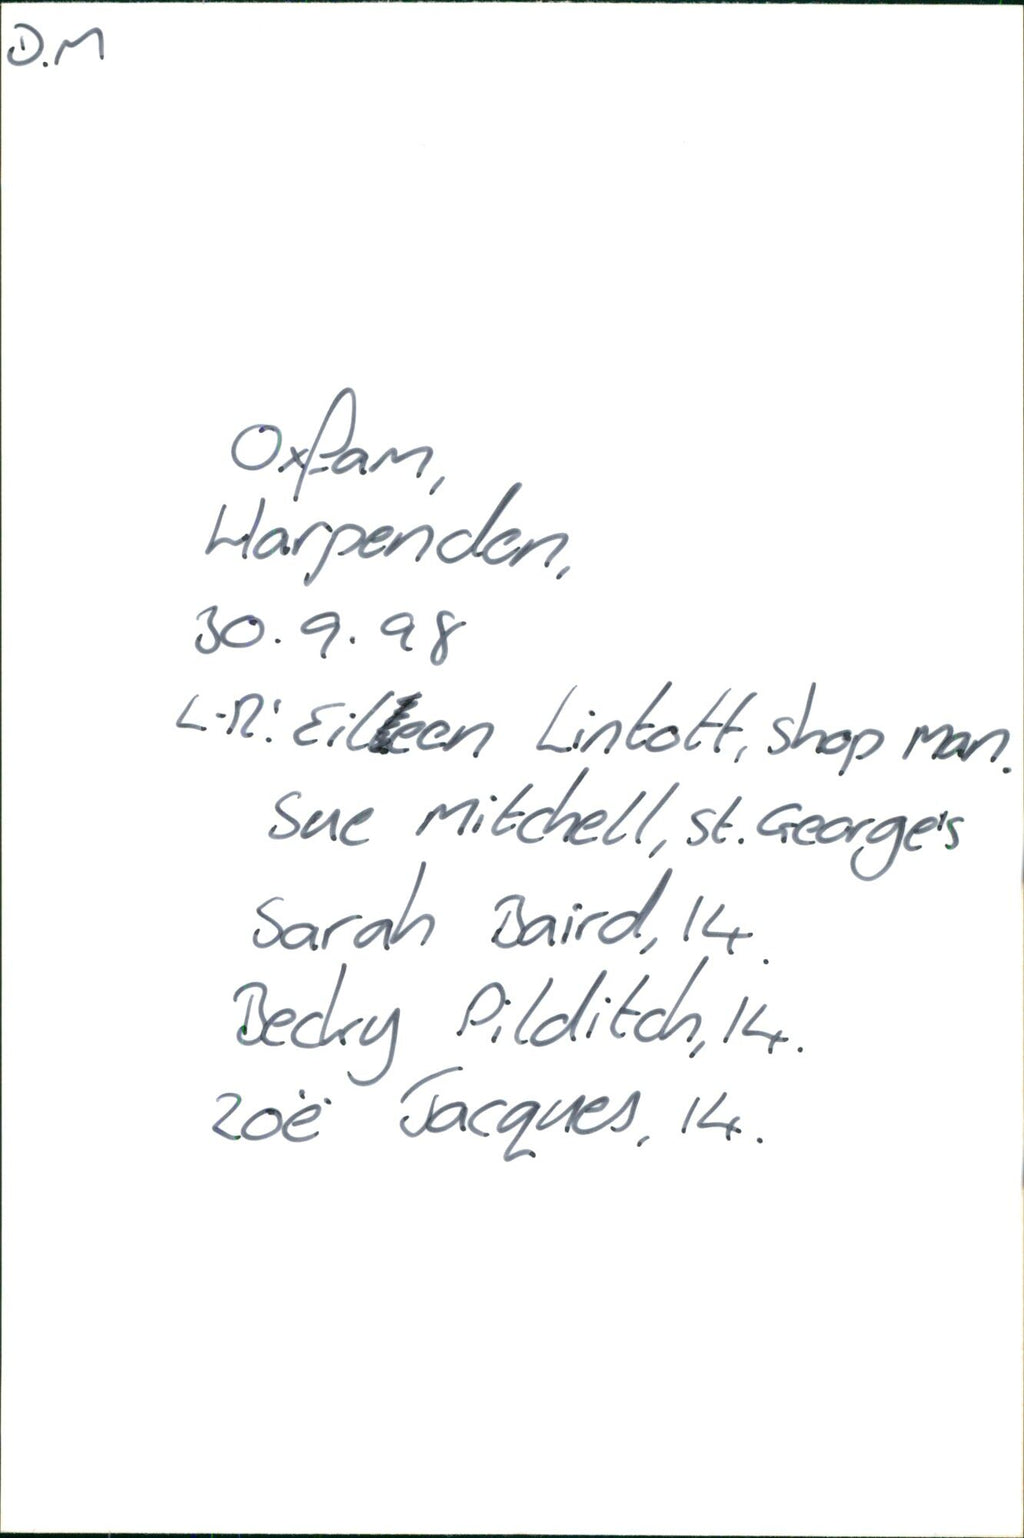 D.M
Oxfam,
Harpenden,
30.9.98
L-R: Eileen Lintott, shop man.
Sue Mitchell, St. George's
Sarah Baird, 14.
Becky Pilditch, 14.
Zoë Jacques, 14.